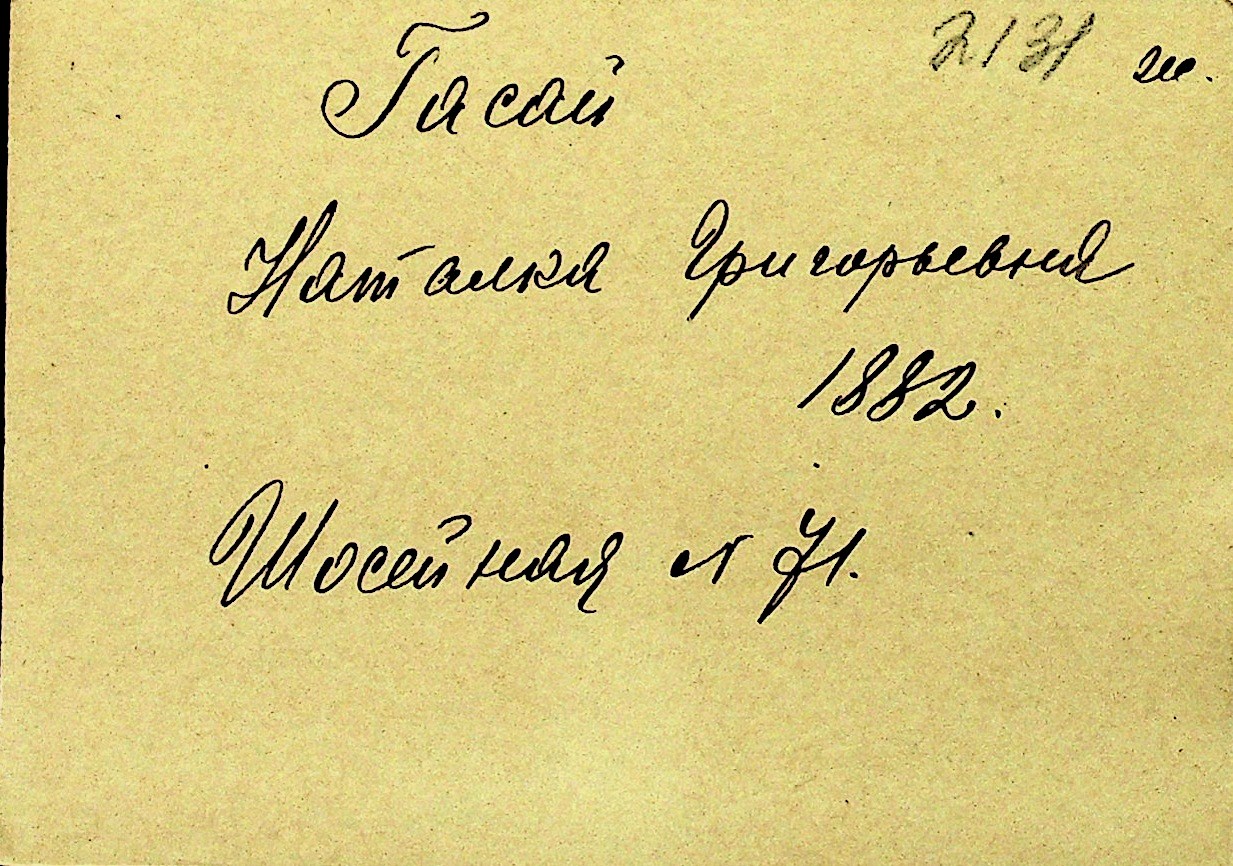 2131 ж.
Гасай
Наталка Григорьевна
1882.
Шосейная № 71.